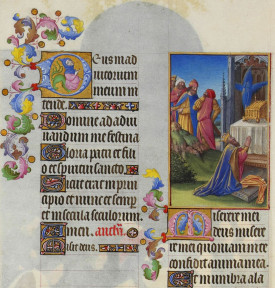 Deus in ad
iutorium
meum in
tende.
Domine ad adiu
uandum me festina
Gloria patri et filio
et spiritui sancto.
Sicut erat in prin
cipio et nunc et semp
et in secula seculorum
Amen. anth'.
Miserere
mei deus misere
re mei quoniam in te
confidit anima mea.
Et in umbra ala